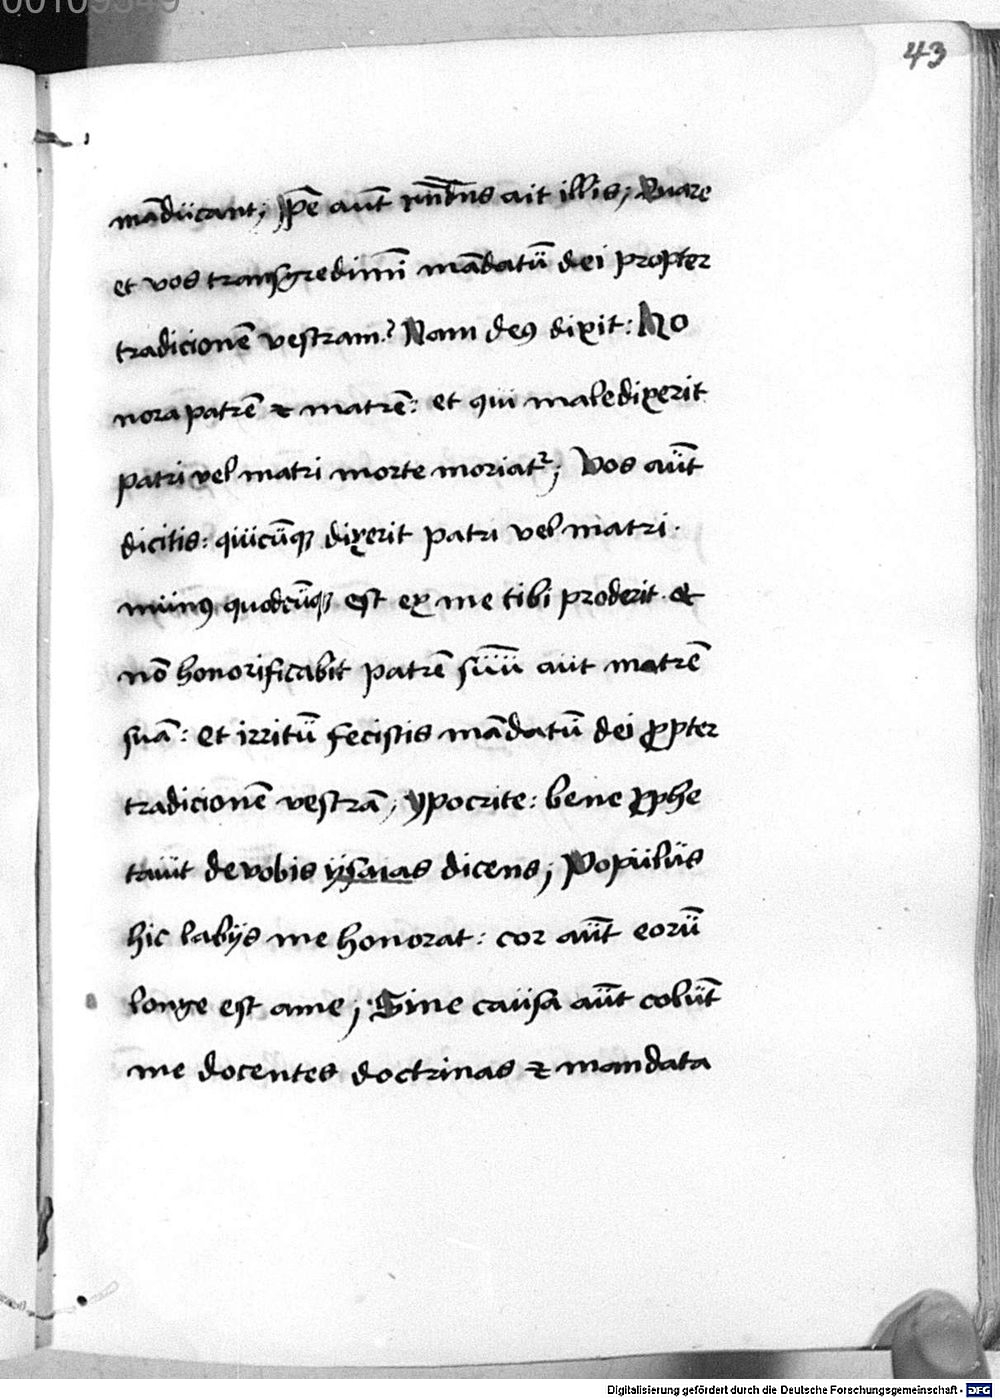 00109349
43
mādücant; Ipē aūt rn̄dēns ait illis; Quare
et vos transgredimī mādatū dei propter
tradicionē vestram? Nam deꝰ dixit: Ho
nora patrē ⁊ matrē: et qui maledixerit
patri vel matri morte moriatᷣ; Vos aūt
dicitis: quicūqꝫ dixerit patri vel matri.
munꝰ quodcūqꝫ est ex me tibi proderit. et
nō honorificabit patrē suū aut matrē
suā: et irritū fecistis mādatū dei ꝓpter
tradicionē vestrā; ypocrite: bene ꝓphe
tauit de vobis ysaias dicens; Populus
hic labijs me honorat: cor aūt eorū
longe est ame; Sine causa aūt colūt
me docentes doctrinas ⁊ mandata
Digitalisierung gefördert durch die Deutsche Forschungsgemeinschaft - DFG